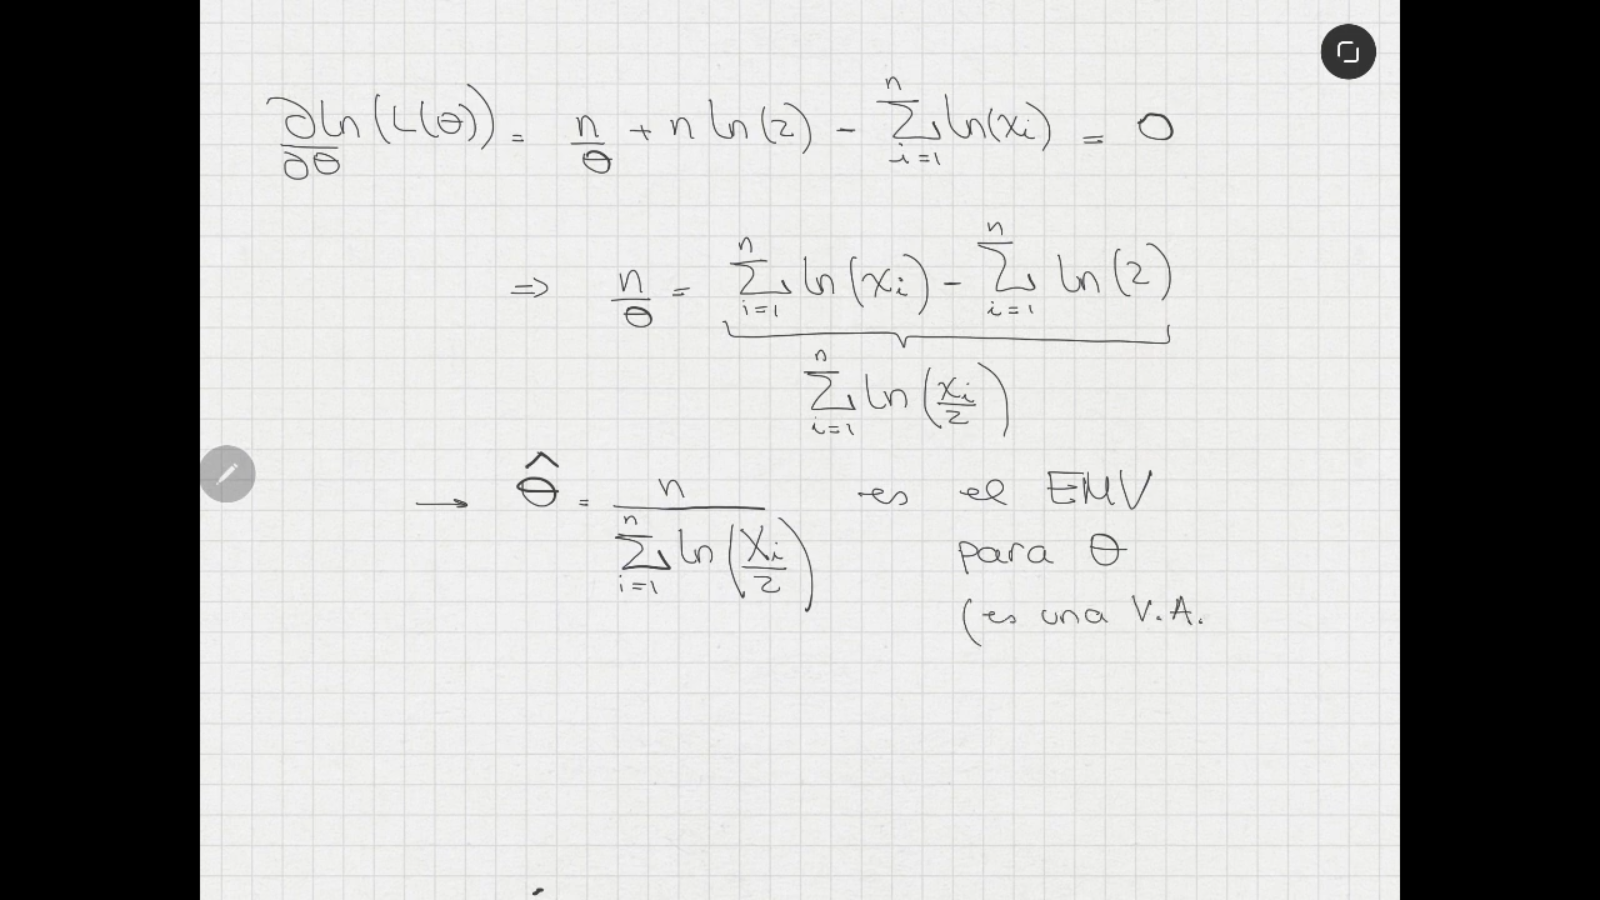 ∂ln(L(θ))/∂θ = n/θ + n ln(2) - Σ_{i=1}^{n} ln(xi) = 0
=> n/θ = Σ_{i=1}^{n} ln(xi) - Σ_{i=1}^{n} ln(2)
Σ_{i=1}^{n} ln(xi/2)
→ θ̂ = n / Σ_{i=1}^{n} ln(Xi/2) es el EMV
para θ
(es una V.A.